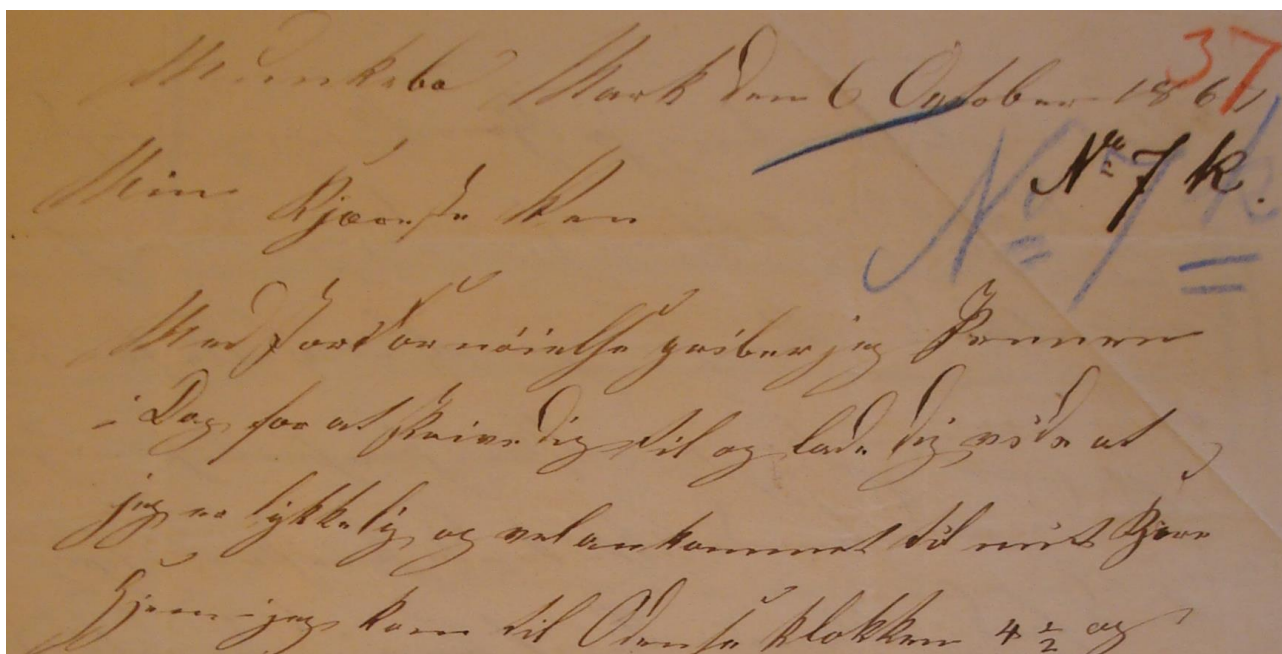 37
Munkebo Mark den 6 October 1861
No 7 k.
No 7 k
Min Kjæreste Ven
Med fornöielse griber jeg Pennen
i Dag for at skrive dig til og lade dig vide at
jeg er lykkelig og vel ankommet til mit Kjere
Hjem jeg kom til Odense klokken 4 1/2 og